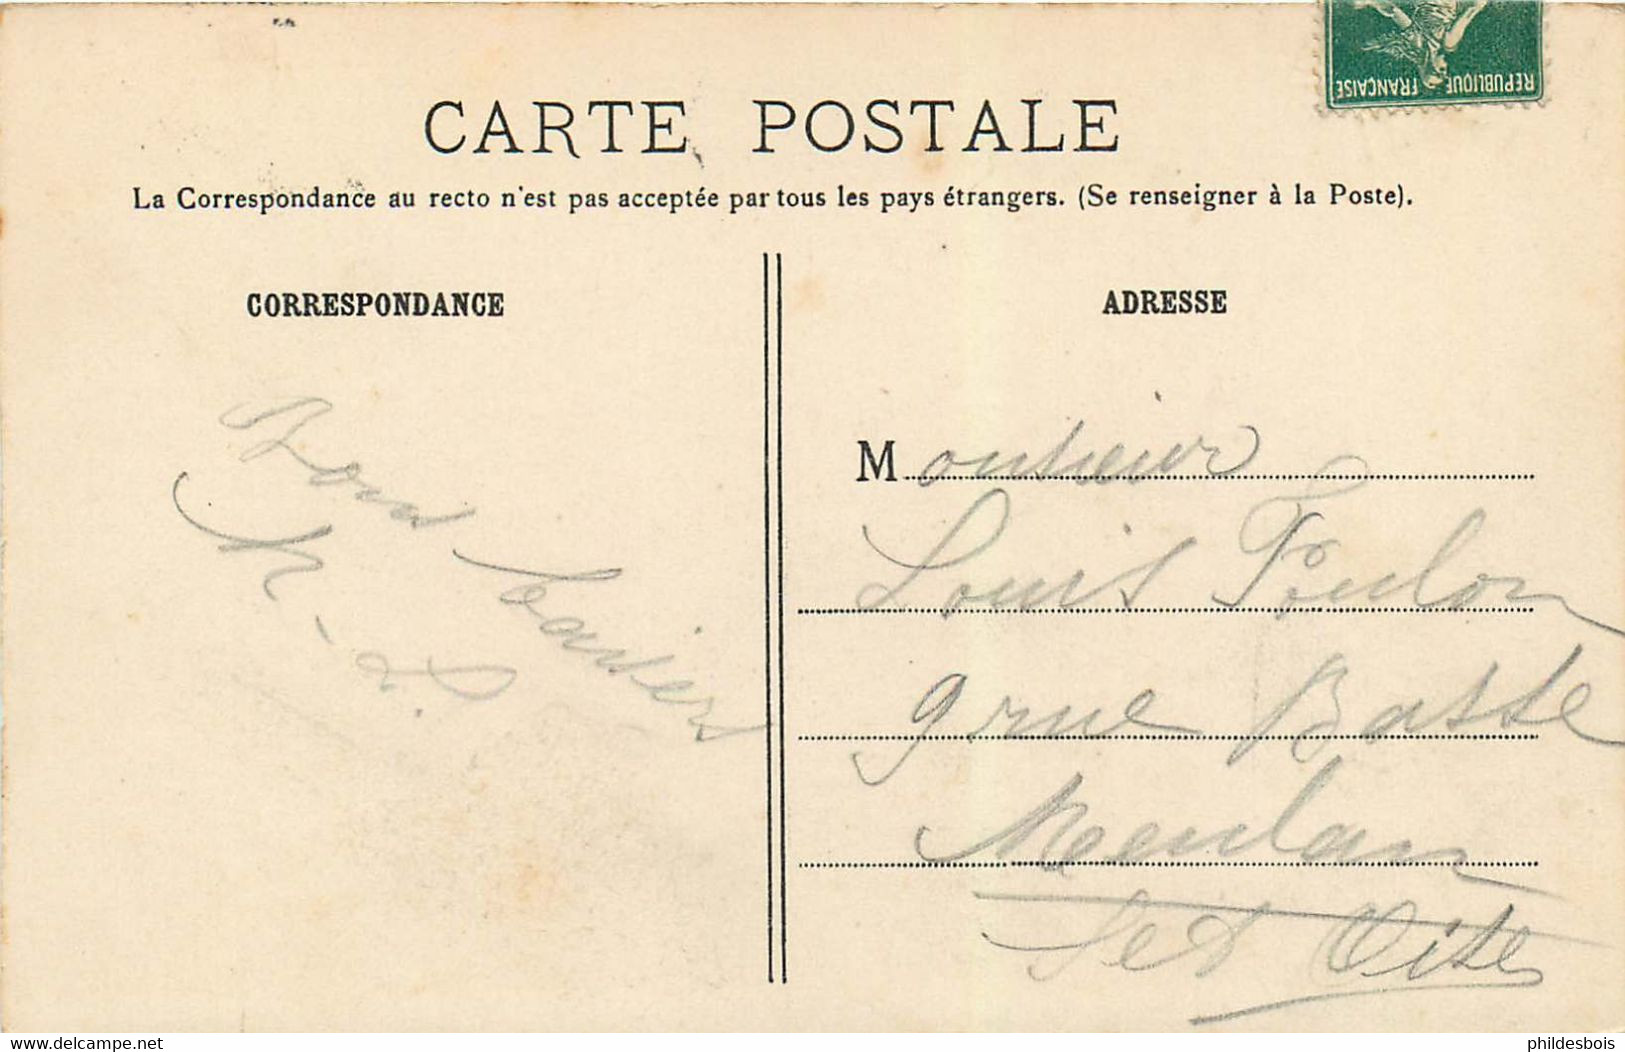 REPUBLIQUE FRANÇAISE
CARTE POSTALE
La Correspondance au recto n'est pas acceptée par tous les pays étrangers. (Se renseigner à la Poste).
CORRESPONDANCE
Bons baisers
ADRESSE
Monsieur
Louis Foulon
9 rue Basse
Meulan
S et Oise
www.delcampe.net
phildesbois